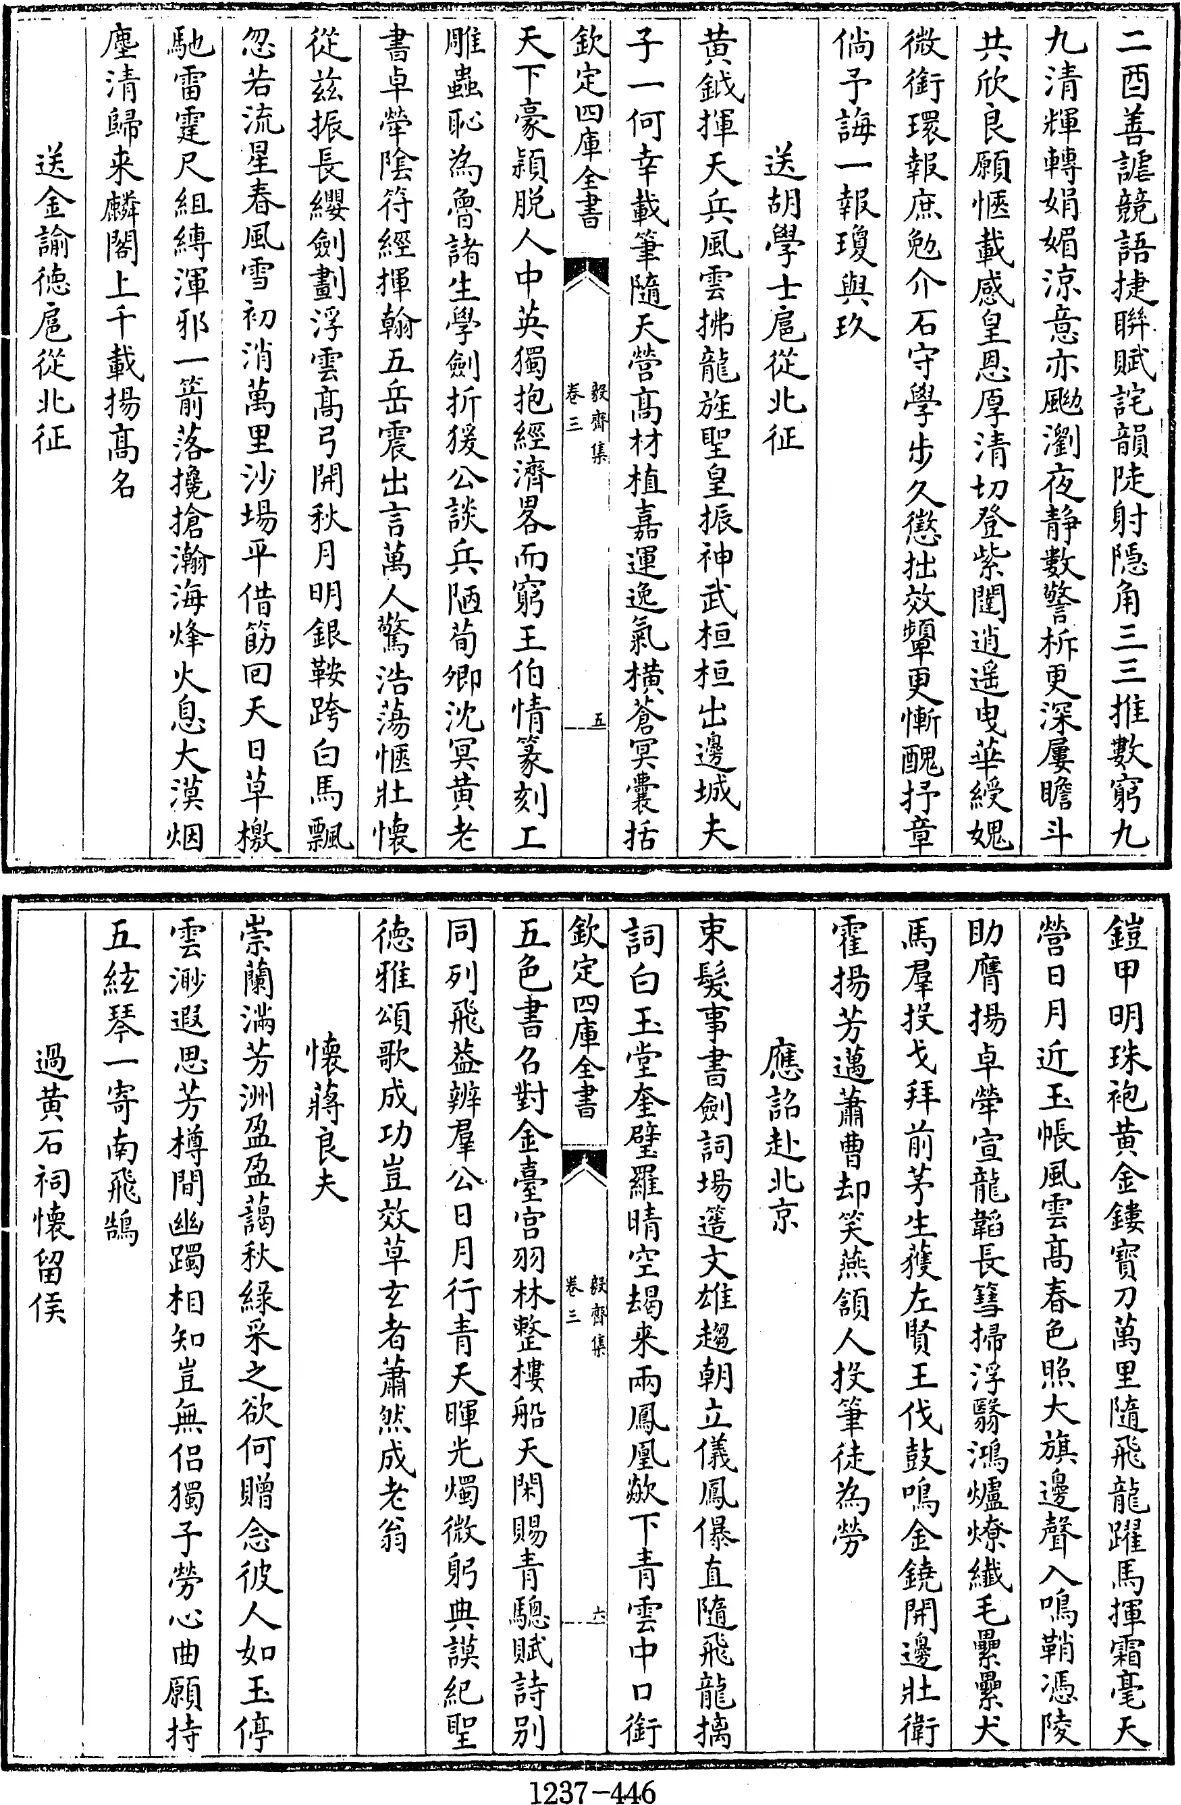 二酉善謔競語捷聨賦詫韻陡射隱角三三推數窮九
九清輝轉娟媚涼意亦颼瀏夜静數警柝更深屢瞻斗
共欣良願愜載感皇恩厚清切登紫闥逍遥曳華綬媿
微銜環報庶勉介石守學步久懲拙效顰更慚醜抒章
倘予誨一報瓊與玖
送胡學士扈從北征
黄鉞揮天兵風雲拂龍旌聖皇振神武桓桓出邊城夫
子一何幸載筆隨天營髙材植嘉運逸氣横蒼冥囊括
欽定四庫全書
毅齋集
卷三
五
天下豪頴脱人中英獨抱經濟畧而窮王伯情篆刻工
雕蟲恥為魯諸生學劍折猨公談兵陋荀卿沈冥黄老
書卓犖陰符經揮翰五岳震出言萬人驚浩蕩愜壯懷
從兹振長纓劍劃浮雲髙弓開秋月明銀鞍跨白馬飄
忽若流星春風雪初消萬里沙場平借筯回天日草檄
馳雷霆尺組縳渾邪一箭落攙搶瀚海烽火息大漠烟
塵清歸来麟閣上千載揚髙名
送金諭徳扈從北征
鎧甲明珠袍黄金鏤寶刀萬里隨飛龍躍馬揮霜毫天
營日月近玉帳風雲髙春色照大旗邊聲入鳴鞘憑陵
助膺揚卓犖宣龍韜長篲掃浮翳鴻爐燎纎毛纍纍犬
馬羣投戈拜前茅生獲左賢王伐鼓鳴金鐃開邊壯衛
霍揚芳邁蕭曹却笑燕頷人投筆徒為勞
應詔赴北京
束髮事書劍詞場簉文雄趨朝立儀鳳儤直隨飛龍摛
詞白玉堂奎璧羅晴空朅来兩鳳凰歘下青雲中口銜
欽定四庫全書
毅齋集
卷三
六
五色書召對金臺宫羽林整樓船天閑賜青驄賦詩别
同列飛葢辨羣公日月行青天暉光燭微躬典謨紀聖
徳雅頌歌成功豈效草玄者蕭然成老翁
懐蔣良夫
崇蘭滿芳洲盈盈藹秋緑采之欲何贈念彼人如玉停
雲渺遐思芳樽間幽躅相知豈無侣獨予勞心曲願持
五絃琴一寄南飛鵠
過黄石祠懐留侯
1237-446